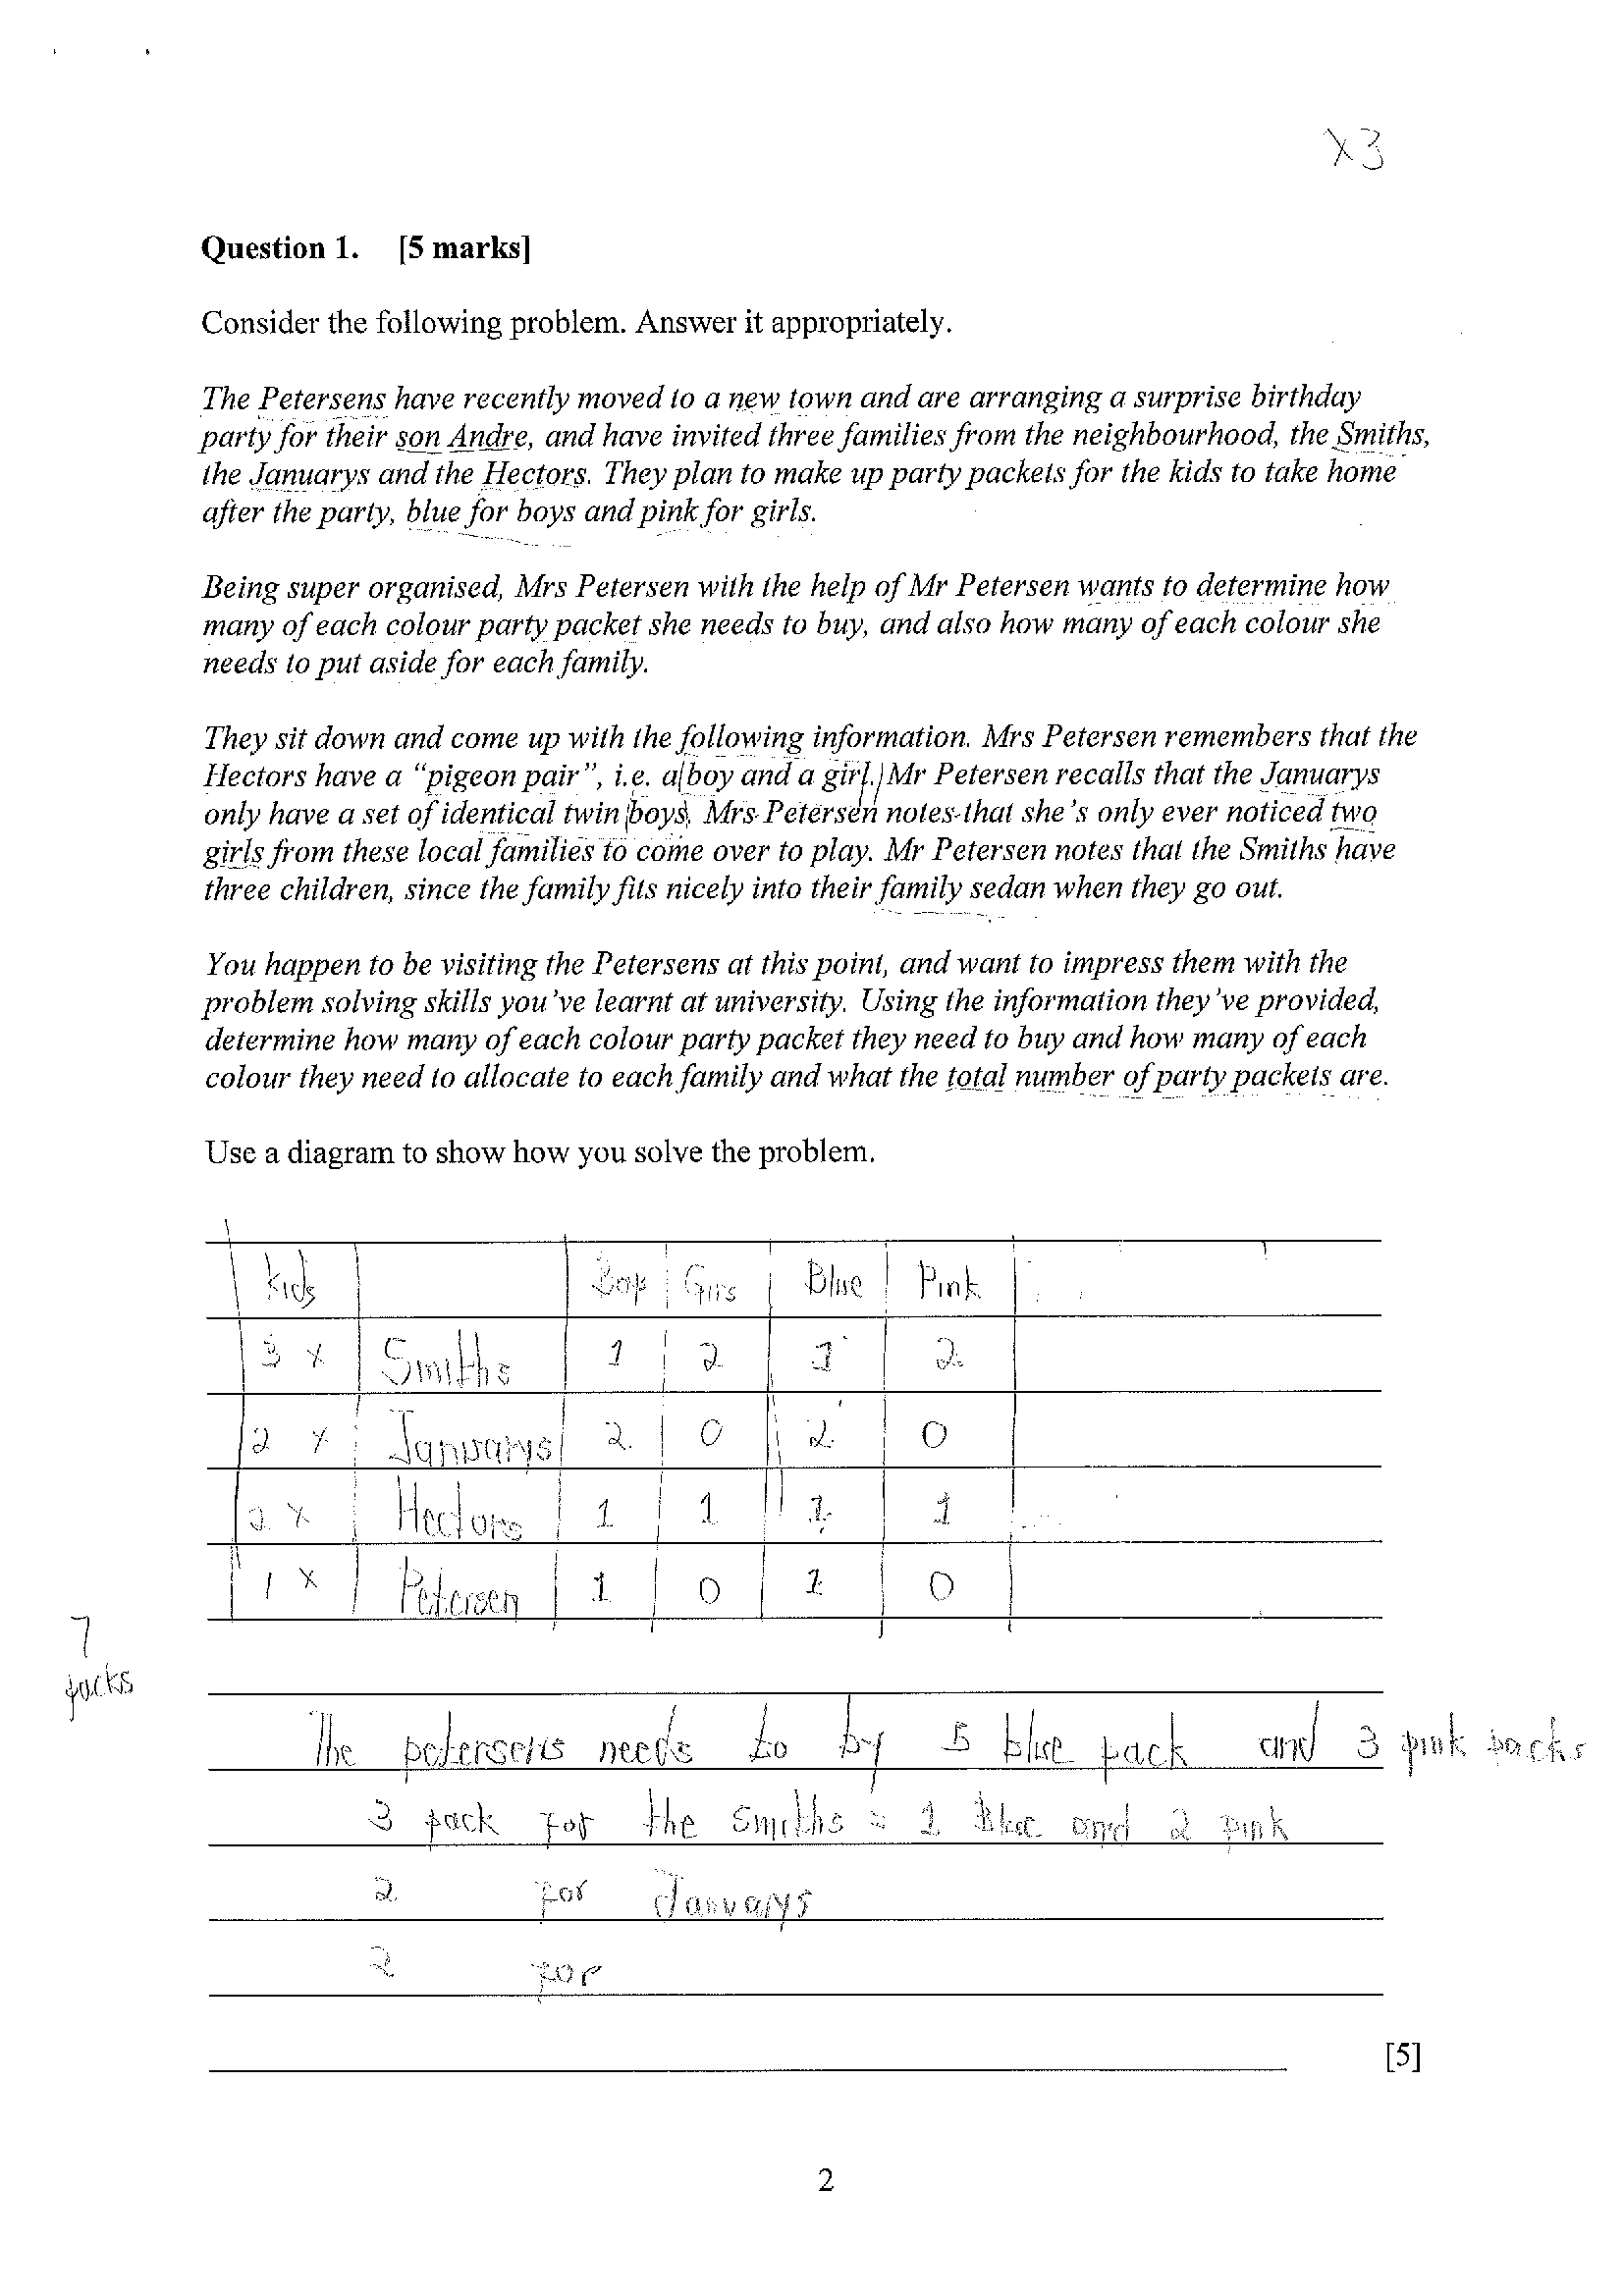 X3
Question 1. [5 marks]
Consider the following problem. Answer it appropriately.
The Petersens have recently moved to a new town and are arranging a surprise birthday
party for their son Andre, and have invited three families from the neighbourhood, the Smiths,
the Januarys and the Hectors. They plan to make up party packets for the kids to take home
after the party, blue for boys and pink for girls.
Being super organised, Mrs Petersen with the help of Mr Petersen wants to determine how
many of each colour party packet she needs to buy, and also how many of each colour she
needs to put aside for each family.
They sit down and come up with the following information. Mrs Petersen remembers that the
Hectors have a "pigeon pair", i.e. a boy and a girl. Mr Petersen recalls that the Januarys
only have a set of identical twin boys. Mrs Petersen notes that she's only ever noticed two
girls from these local families to come over to play. Mr Petersen notes that the Smiths have
three children, since the family fits nicely into their family sedan when they go out.
You happen to be visiting the Petersens at this point, and want to impress them with the
problem solving skills you've learnt at university. Using the information they've provided,
determine how many of each colour party packet they need to buy and how many of each
colour they need to allocate to each family and what the total number of party packets are.
Use a diagram to show how you solve the problem.
Kids Blue Pink
3 x Smiths 1 2 1 2
2 x Januarys 2 0 2 0
2 x Hectors 1 1 1 1
1 x Petersen 1 0 1 0
7
packs
The petersens needs to by 5 blue pack and 3 pink packs
3 pack for the Smiths = 1 Blue and 2 pink
2 for Januarys
2 for
[5]
2